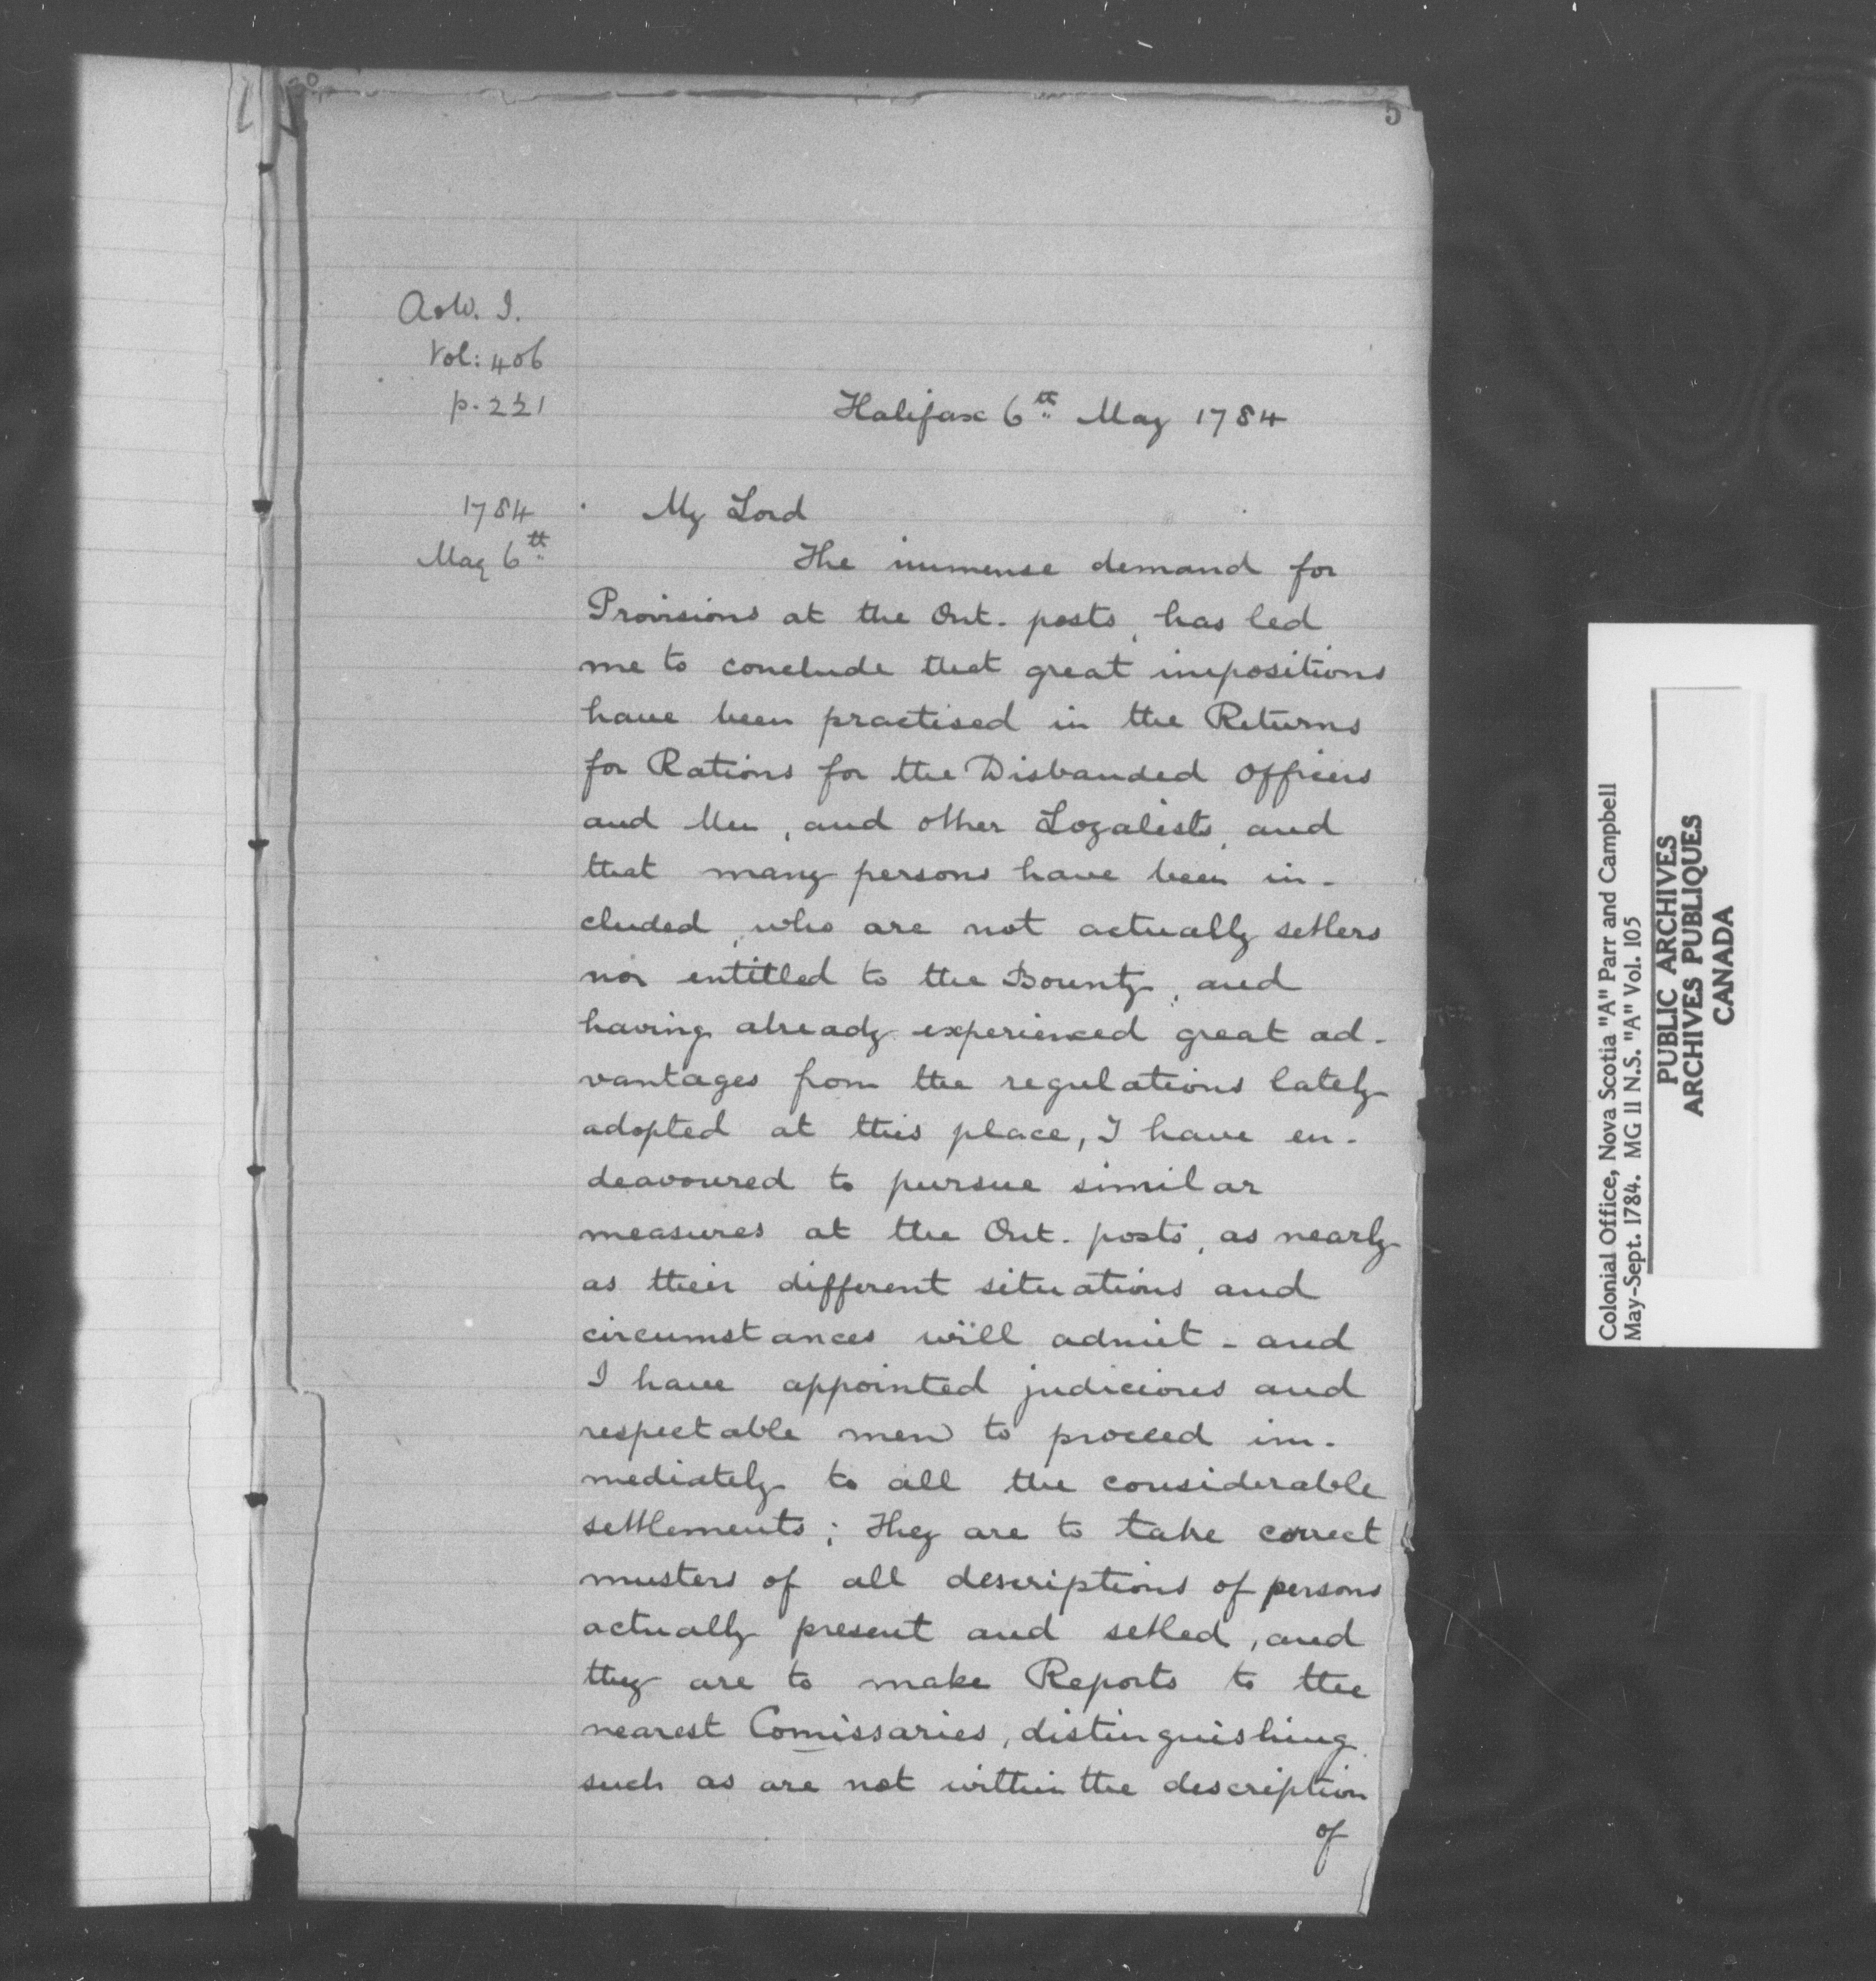 5
A&W. I.
Vol: 406
p. 221
Halifax 6th May 1784
1784
May 6th
My Lord
The immense demand for
Provisions at the Out-posts, has led
me to conclude that great impositions
have been practised in the Returns
for Rations for the Disbanded Officers
and Men, and other Loyalists, and
that many persons have been in-
cluded, who are not actually settlers
nor entitled to the Bounty, and
having already experienced great ad-
vantages from the regulations lately
adopted at this place, I have en-
deavoured to pursue similar
measures at the Out-posts, as nearly
as their different situations and
circumstances will admit - and
I have appointed judicious and
respectable men to proceed im-
mediately to all the considerable
settlements; They are to take correct
musters of all descriptions of persons
actually present and settled, and
they are to make Reports to the
nearest Comissaries, distinguishing
such as are not within the description
of
Colonial Office, Nova Scotia "A" Parr and Campbell
May-Sept. 1784. MG 11 N.S. "A" Vol. 105
PUBLIC ARCHIVES
ARCHIVES PUBLIQUES
CANADA